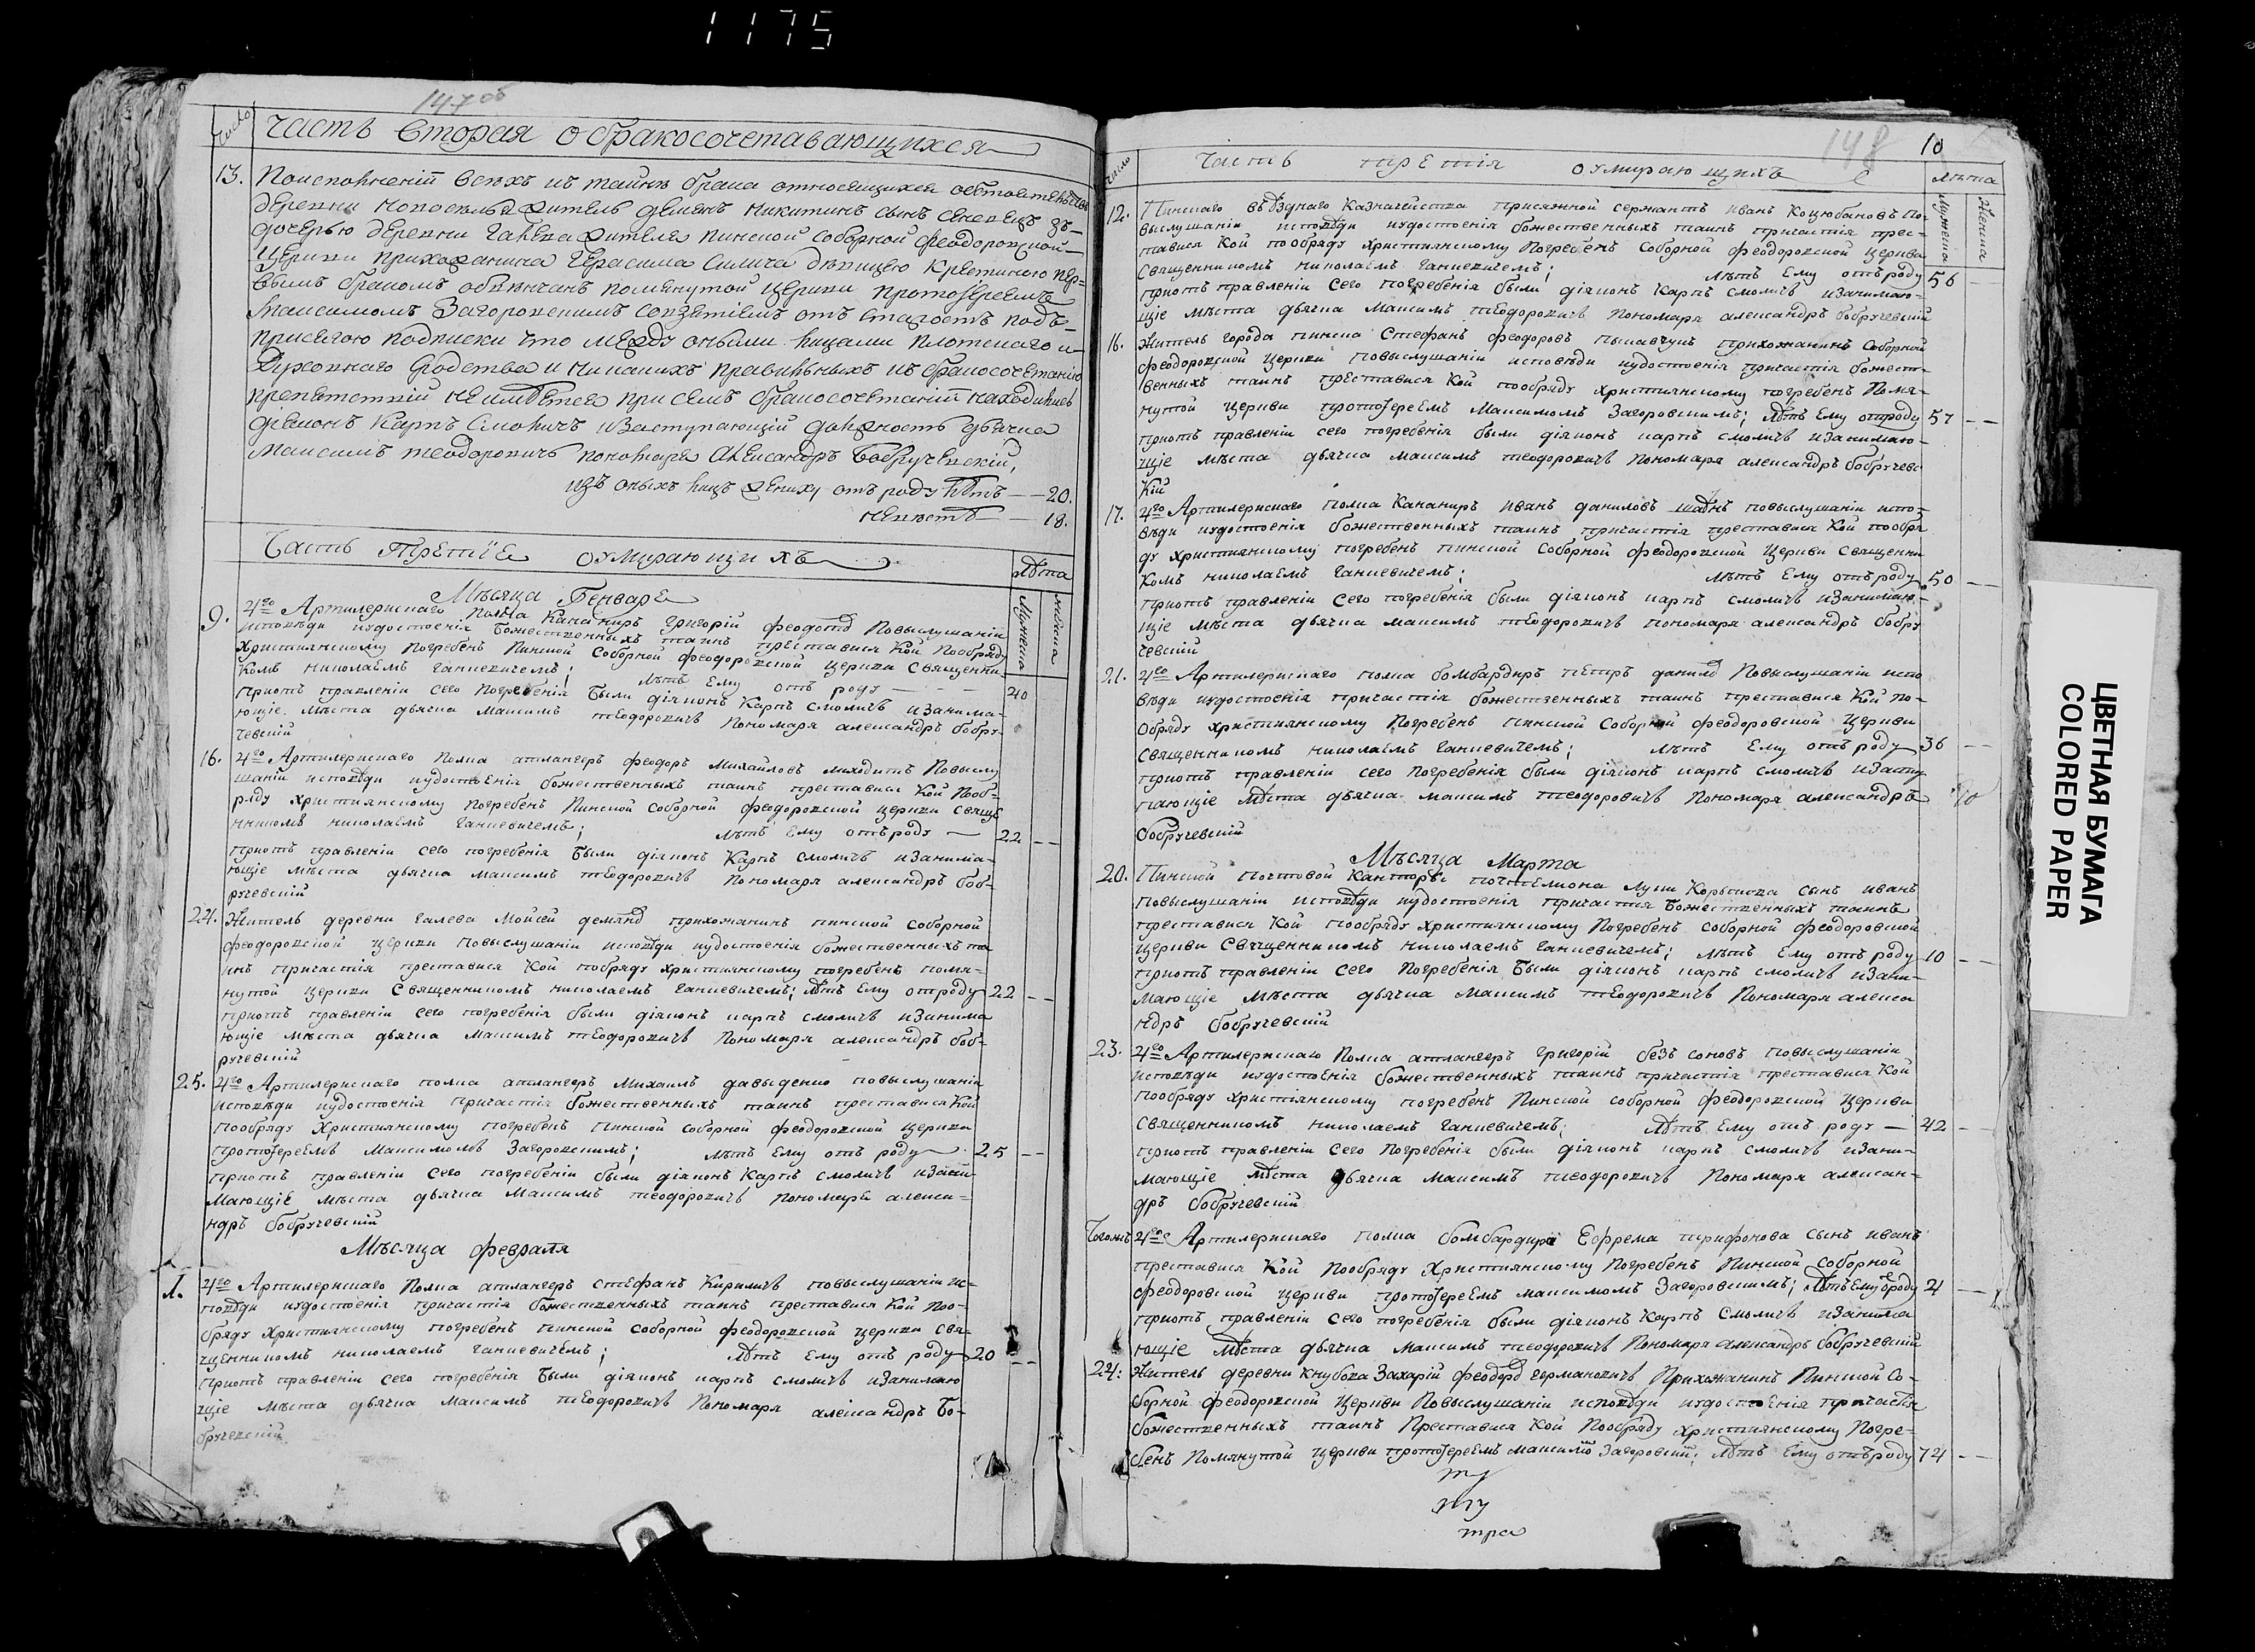 1175
147 об
Число
Часть вторая о бракосочетавающихся
13. По исполненій всѣхъ къ тайнѣ брака относящихся обстоятельствъ
деревни житель Никитинъ сынъ зъ-
дочерью деревни Галева жителя Пинской соборной Феодоровской
Церкви прихожанина Герасима Силича дѣвицею Кристиною пер-
вымъ бракомъ обвѣнчанъ помянутой церкви протоІереемъ
Максимомъ Загоровскимъ со взятіемъ отъ старостъ подъ-
присягою подписки что между оными лицами плотскаго и-
Духовнаго родства и никакихъ правильныхъ къ бракосочетанію
препятствій не имѣется при семъ бракосочетаній находились
діяконъ Карпъ Смоличъ и заступающій должность дьячка
Максимъ теодоровичъ пономаря Александръ Бобручевскій,
изъ оныхъ лицъ жениху отъ роду лѣтъ — 20.
невѣстѣ — 18.
Часть третіе о умирающихъ
Лѣта
Мужеска
Женска
Мѣсяца Генваря
9. 4го Артилерискаго Полка Кананиръ Григорій феодотов Повыслушаніи
исповѣди иудостоенія Божественныхъ таинъ преставися Кой Пообряду
Християнскому Погребенъ Пинской Соборной феодоровской церкви Священни
комъ николаемъ Ганкевичемъ; лѣтъ Ему отъ роду — 40
приотъ правленіи сего погребенія Были діяконъ Карпъ смоличъ изанима-
ющіе мѣста дьячка максимъ теодоровичъ Пономаря александръ бобру-
чевскій
16. 4го Артилерискаго Полка атлангеръ феодоръ Михаиловъ Повыслу
шаніи исповѣди иудостоенія божественныхъ таинъ преставися Кой Пооб-
ряду християнскому Погребенъ Пинской Соборной феодоровской церкви Свяще
нникомъ николаемъ Ганкевичемъ; лѣтъ Ему отъ роду — 22 --
приотъ правленіи сего погребенія Были діяконъ Карпъ смоличъ изанима-
ющіе мѣста дьячка максимъ теодоровичъ Пономаря александръ боб-
ручевскій
24. Житель деревни Галева Мойсей прихожанинъ пинской соборной
феодоровской церкви повыслушаніи исповѣди иудостоенія божественныхъ та
инъ причастія преставися Кой побряду християнскому погребенъ помя-
нутой церкви Священникомъ николаемъ Ганкевичемъ; лѣтъ Ему отроду 22 --
приотъ правленіи сего погребенія были діяконъ карпъ смоличъ изанима
ющіе мѣста дьячка Максимъ теодоровичъ Пономаря александръ боб-
ручевскій
25. 4го Артилерискаго полка атлангеръ Михаилъ давыденко повыслушаніи
исповѣди иудостоенія причастія божественныхъ таинъ преставися Кой
пообряду Християнскому погребенъ пинской соборной феодоровской церкви
протоІереемъ Максимомъ Загоровскимъ; лѣтъ Ему отъ роду 25 --
приотъ правленіи сего погребеніи были діяконъ Карпъ смоличъ изани
мающіе мѣста дьячка Максимъ теодоровичъ пономаря алекса-
ндръ бобручевскій
Мѣсяца февраля
1. 4го Артилерискаго Полка атлангеръ стефанъ Кириличъ повыслушаніи ис-
повѣди иудостоенія причастія божественныхъ таинъ преставися Кой Поо-
бряду Християнскому погребенъ пинской соборной феодоровской церкви свя-
щенникомъ николаемъ Ганкевичемъ; лѣтъ Ему отъ роду 20 --
приотъ правленіи сего погребенія Были діяконъ карпъ смоличъ изанимаю
щіе мѣста дьячка максимъ теодоровичъ Пономаря александръ Бо-
бручевскій
148
10
Число
Часть третія о умирающихъ
лѣта
Мужеска
Женска
12. Пинскаго вѣзднаго Казначейства присяжной сержантъ иванъ Коцюбановъ По-
выслушаніи исповѣди иудостоенія божественныхъ таинъ причастія прес-
тавися Кой пообряду християнскому Погребенъ Соборной феодоровской церкви
Священникомъ николаемъ Ганкевичемъ; лѣтъ Ему отъ роду 56 —
приотъ правленіи Сего погребенія были діяконъ Карпъ смоличъ изанимаю-
щіе мѣста дьячка Максимъ теодоровичъ Пономаря александръ бобручевскій
16. Житель города пинска Стефанъ феодоровъ прихожанинъ Соборной
феодоровской церкви повыслушаніи исповѣди иудостоенія причастія божест-
венныхъ таинъ преставися Кой пообряду християнскому погребенъ Помя-
нутой церкви протоІереемъ Максимомъ Загоровскимъ; лѣтъ Ему отроду 57 --
приотъ правленіи сего погребенія были діяконъ карпъ смоличъ изанимаю-
щіе мѣста дьячка максимъ теодоровичъ Пономаря александръ бобручевс
кій
17. 4го Артилерискаго полка Кананиръ иванъ даниловъ повыслушаніи испо-
вѣди иудостоенія божественныхъ таинъ причастія преставися Кой пообря
ду християнскому погребенъ пинской соборной феодоровской церкви священни
комъ николаемъ Ганкевичемъ; лѣтъ Ему отъ роду 50 —
приотъ правленіи сего погребенія были діяконъ карпъ смоличъ изанимаю-
щіе мѣста дьячка максимъ теодоровичъ пономаря александръ бобру
чевскій
21. 4го Артилерискаго полка бомбардиръ петръ Повыслушаніи испо
вѣди иудостоенія причастія божественныхъ таинъ преставися Кой по-
обряду християнскому Погребенъ пинской Соборной феодоровской церкви
священникомъ николаемъ Ганкевичемъ; лѣтъ Ему отъ роду 36 --
приотъ правленіи сего погребенія были діяконъ карпъ смоличъ
мѣста дьячка максимъ теодоровичъ Пономаря александръ
бобручевскій
Мѣсяца Марта
20. Пинской почтовой Канторы почтелиона Луки сынъ иванъ
повыслушаніи исповѣди иудостоенія причастія Божественныхъ таинъ
преставися Кой пообряду християнскому Погребенъ соборной феодоровской
церкви Священникомъ николаемъ Ганкевичемъ; лѣтъ Ему отъ роду 10 --
приотъ правленіи сего Погребенія Были діяконъ карпъ смоличъ изани-
мающіе мѣста дьячка максимъ теодоровичъ Пономаря алекса
ндръ бобручевскій
23. 4го Артилерискаго Полка атлангеръ Григорій безъсоновъ повыслушаніи
исповѣди иудостоенія божественныхъ таинъ причастія преставися Кой
пообряду християнскому погребенъ Пинской соборной феодоровской церкви
священникомъ николаемъ Ганкевичемъ; лѣтъ Ему отъ роду — 42 --
приотъ правленіи сего Погребенія были діяконъ карпъ смоличъ изани-
мающіе мѣста дьячка максимъ теодоровичъ Пономаря алексан-
дръ бобручевскій
4го Артилерискаго полка бомбардира Ефрема трифонова сынъ иванъ
преставися Кой Пообряду Християнскому Погребенъ Пинской Соборной
феодоровской церкви протоІереемъ максимомъ Загоровскимъ; лѣтъ Ему отроду 4 --
приотъ правленіи сего погребенія были діяконъ Карпъ Смоличъ изанима
ющіе мѣста дьячка максимъ теодоровичъ Пономаря александръ бобручевскій
24: Житель деревни Кнубова Захарій феодоров Германовичъ Прихожанинъ Пинской Со-
борной феодоровской церкви Повыслушаніи исповѣди иудостоенія причастія
божественныхъ таинъ Преставися Кой Пообряду християнскому Погре-
бенъ Помянутой церкви протоІереемъ максимо Загоровский; лѣтъ Ему отъ роду 74 --
ту
ту
тра
ЦВЕТНАЯ БУМАГА
COLORED PAPER